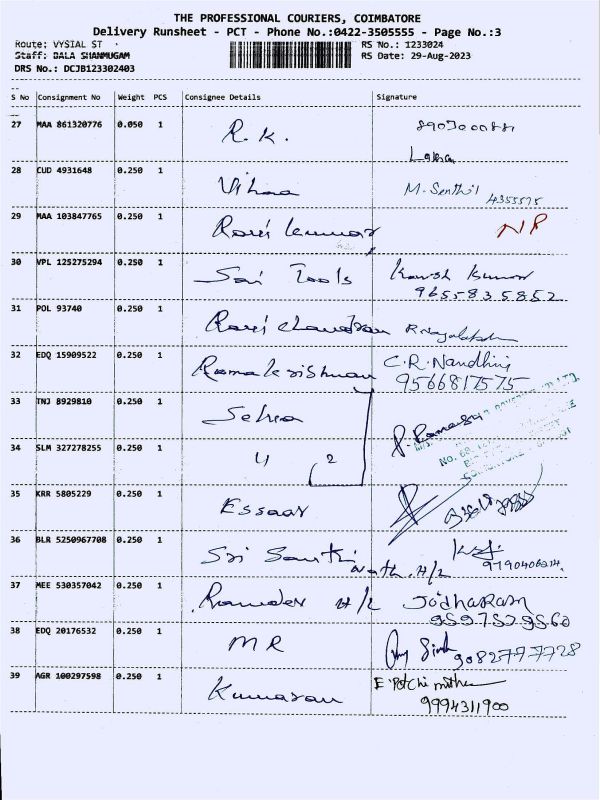 THE PROFESSIONAL COURIERS, COIMBATORE
Delivery Runsheet - PCT - Phone No.:0422-3505555 - Page No.:3
Route: VYSIAL ST RS No.: 1233024
Staff: BALA SHANMUGAM RS Date: 29-Aug-2023
DRS No.: DCJB123302403
S No Consignment No Weight PCS Consignee Details Signature
27 MAA 861320776 0.050 1 R.K.
28 CUD 4931648 0.250 1 Vihaa M. Senthil 4355575
29 MAA 103847765 0.250 1 Ravi kumar NP
30 VPL 125275294 0.250 1 Sai Tools Kumar
9655835852
31 POL 93740 0.250 1 Ravi chandran
32 EDQ 15909522 0.250 1 Ramakrishnan C.R. Nandhini
9566817575
33 TNJ 8929810 0.250 1
34 SLM 327278255 0.250 1 2
35 KRR 5805229 0.250 1 Essaar
36 BLR 5250967708 0.250 1 Sri
H/L
37 MEE 530357042 0.250 1 Ramdev H/L Jodharam
38 EDQ 20176532 0.250 1 MR 9082777728
39 AGR 100297598 0.250 1 Kumaran
9994311900